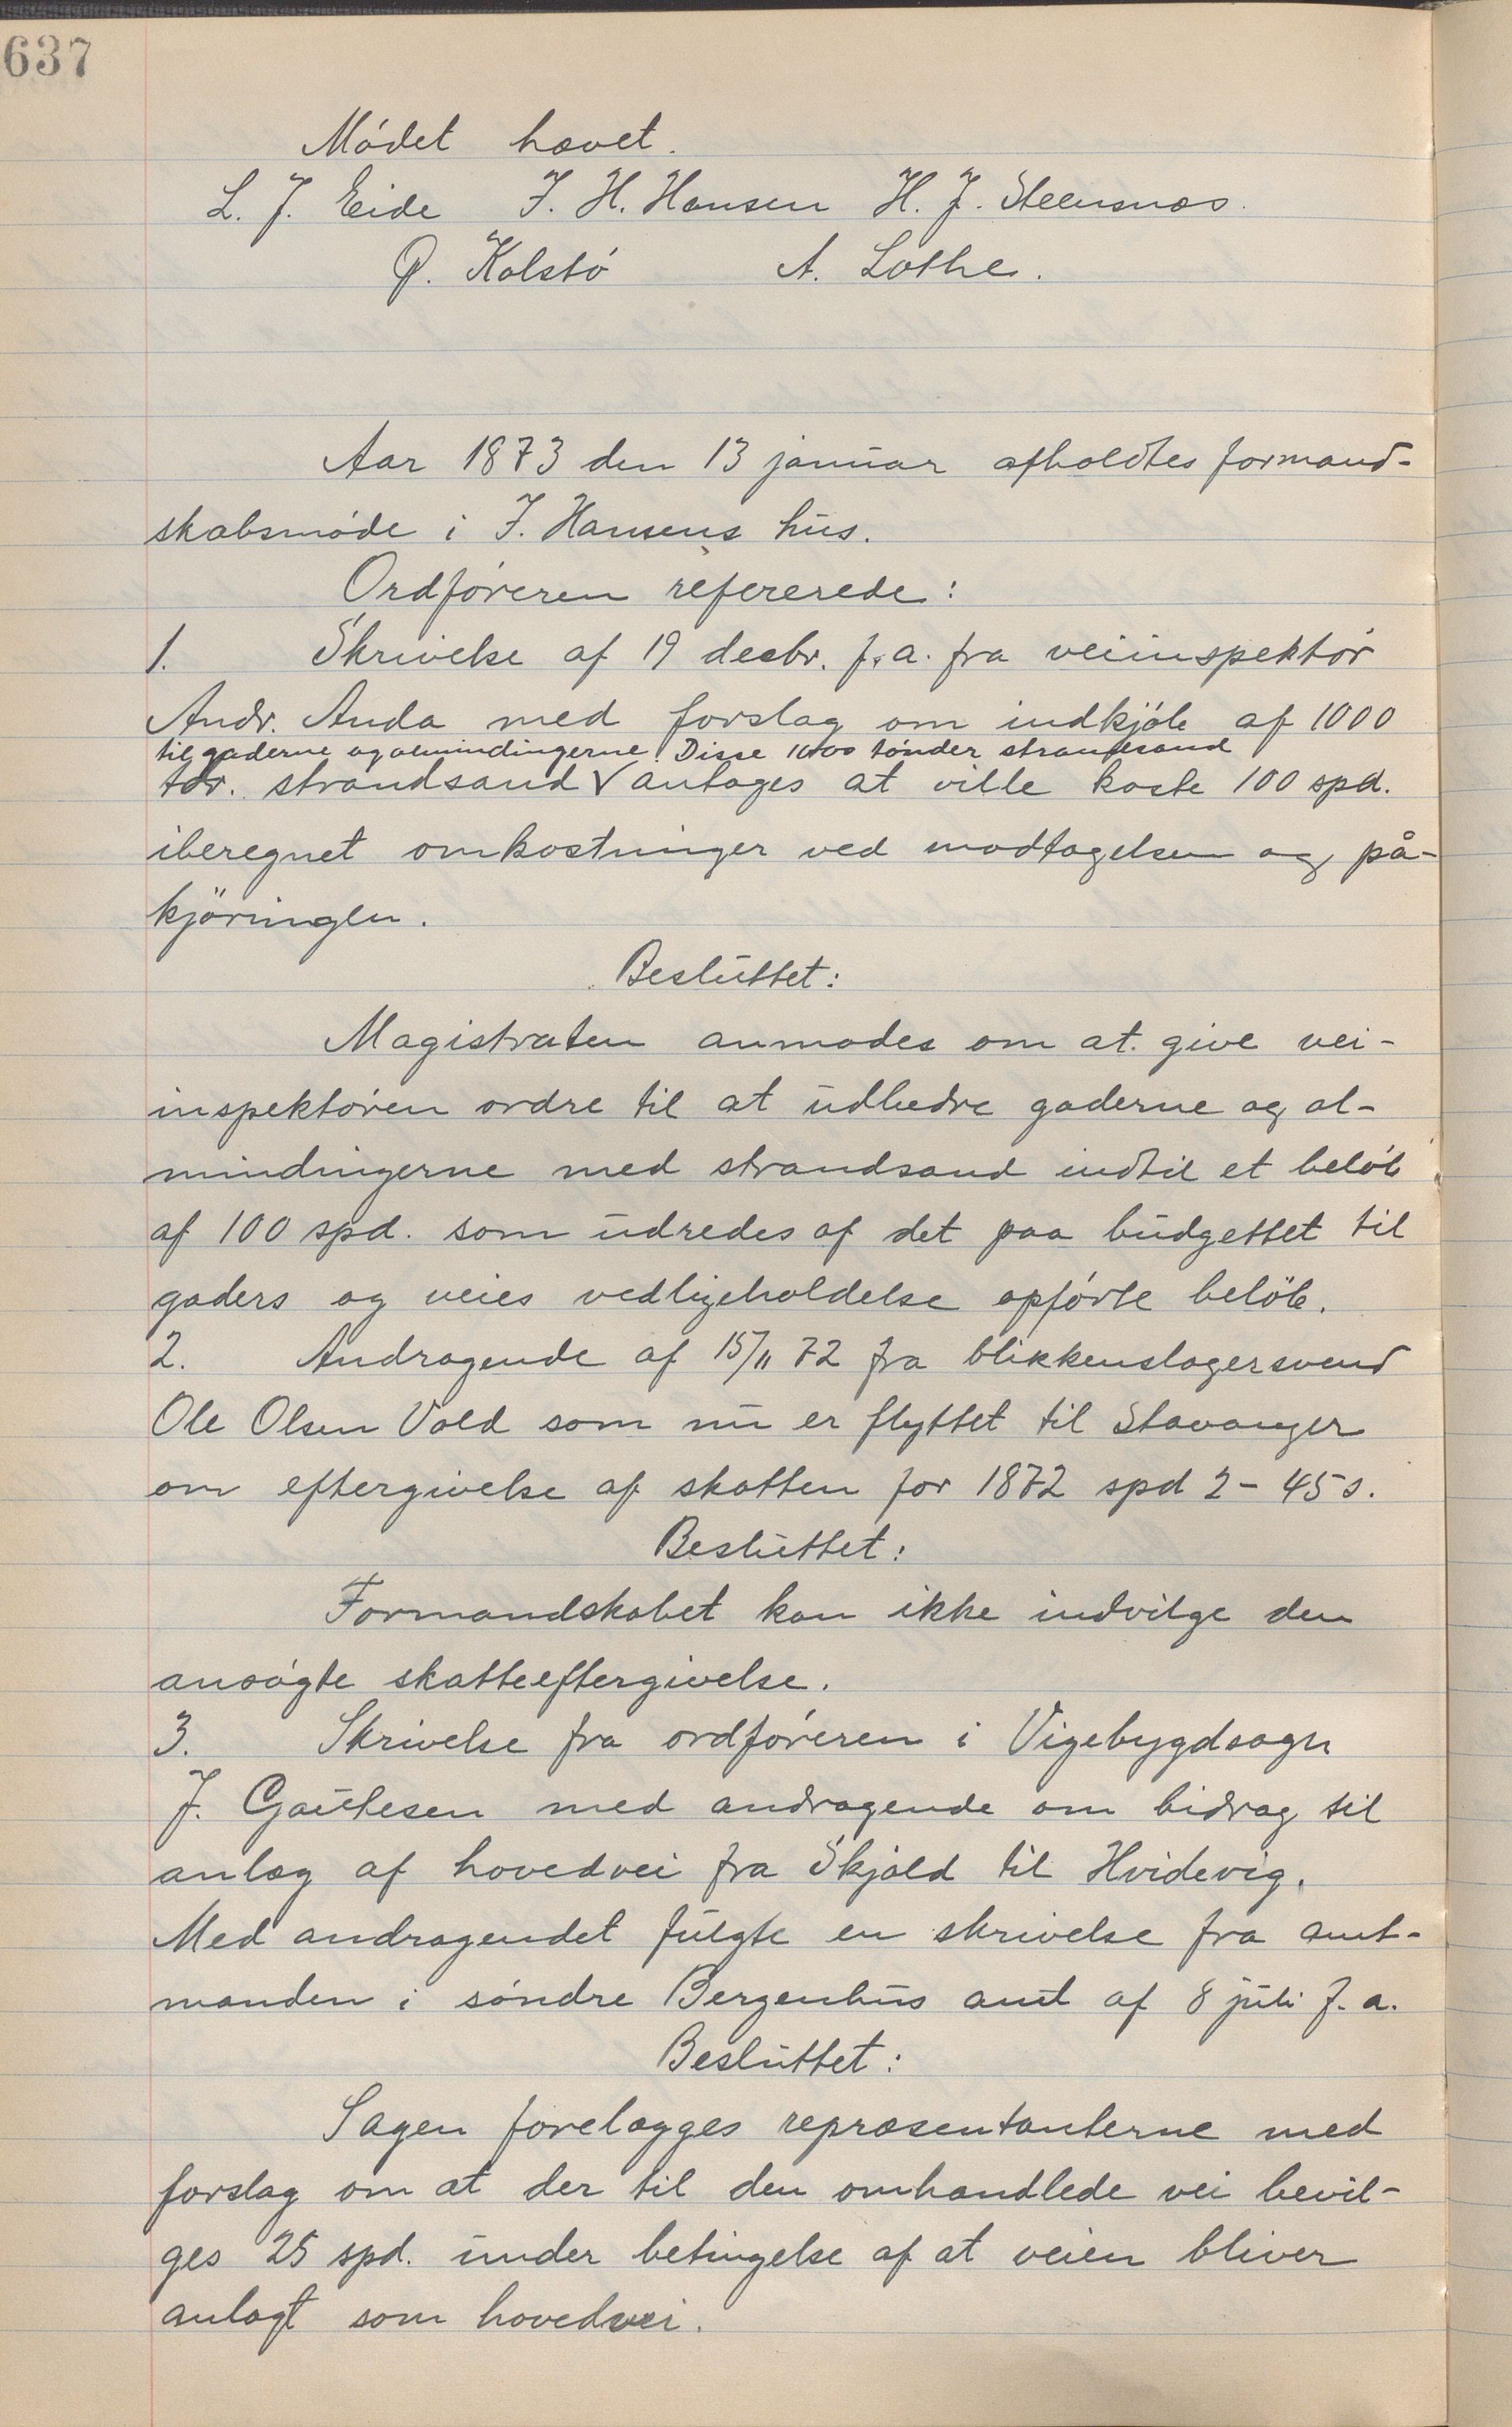 637
Mödet hævet.
L. J. Eide J. H. Hansen H. J. Steensnæs.
Q. Kolstö A. Lothe.
Aar 1873 den 13 januar afholdtes formand-
skabsmöde i J. Hansens hus.
Ordföreren refererede:
1. Skrivelse af 19 decbr. f.a. fra veiinspektör
Andr. Anda med forslag om indkjöb af 1000
til gaderne og almindingerne. Disse 1000 tönder strandsand
tdr. strandsand V antages at ville koste 100 spd.
iberegnet omkostninger ved modtagelsen og på-
kjöringen.
Besluttet:
Magistraten anmodes om at give vei-
inspektören ordre til at udbedre gaderne og al-
mindingerne med strandsand indtil et belöb
af 100 spd. som udredes af det paa budgettet til
gaders og veies vedligeholdelse opförte belöb.
2. Andragende af 15/11 72 fra blikkenslagersvend
Ole Olsen Vold som nu er flyttet til Stavanger
om eftergivelse af skatten for 1872 spd 2 - 45 s.
Besluttet:
Formandskabet kan ikke indvilge den
ansögte skatteeftergivelse.
3. Skrivelse fra ordföreren i Vigebygdsogn
J. Gautesen med andragende om bidrag til
anlæg af hovedvei fra Skjold til Hvidevig.
Med andragendet fulgte en skrivelse fra amt-
manden i söndre Bergenhus amt af 8 juli f. a.
Besluttet:
Sagen forelægges repræsentanterne med
forslag om at der til den omhandlede vei bevil-
ges 25 spd. under betingelse af at veien bliver
anlagt som hovedvei.